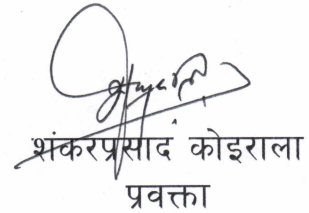 शंकरप्रसाद कोइराला
प्रवक्ता